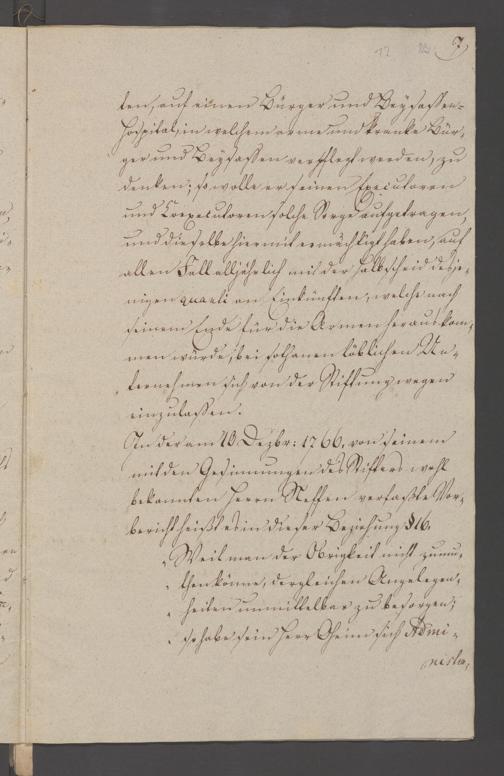 12 7
ten, auf einen Bürger und Beysassen-
hospital, in welchem arme und kranke Bür-
ger und Beysassen verpflegt werden, zu
denken; so wolle er seinen Executoren
und Coexecutoren solche Sorge aufgetragen,
und dieselbe hiermit ermächtigt haben, auf
allen Fall alljährlich mit der Halbscheid desje-
nigen quanti an Einkünften, welche nach
seinem Ende für die Armen herauskom-
men würde, bei sothanen löblichen Un-
ternehmen sich von der Stiftung wegen
einzulassen.
In der am 13 Dezbr: 1766. von seinem
mit den Gesinnungen des Stifters wohl
bekannten Herrn Neffen verfaßte Vor-
bericht heißt es in dieser Beziehung §16.
„Weil man der Obrigkeit nicht zumu-
„then könne, dergleichen Angelegen-
„heiten unmittelbar zu besorgen;
„so habe sein Herr Oheim sich Admi-
nistra,